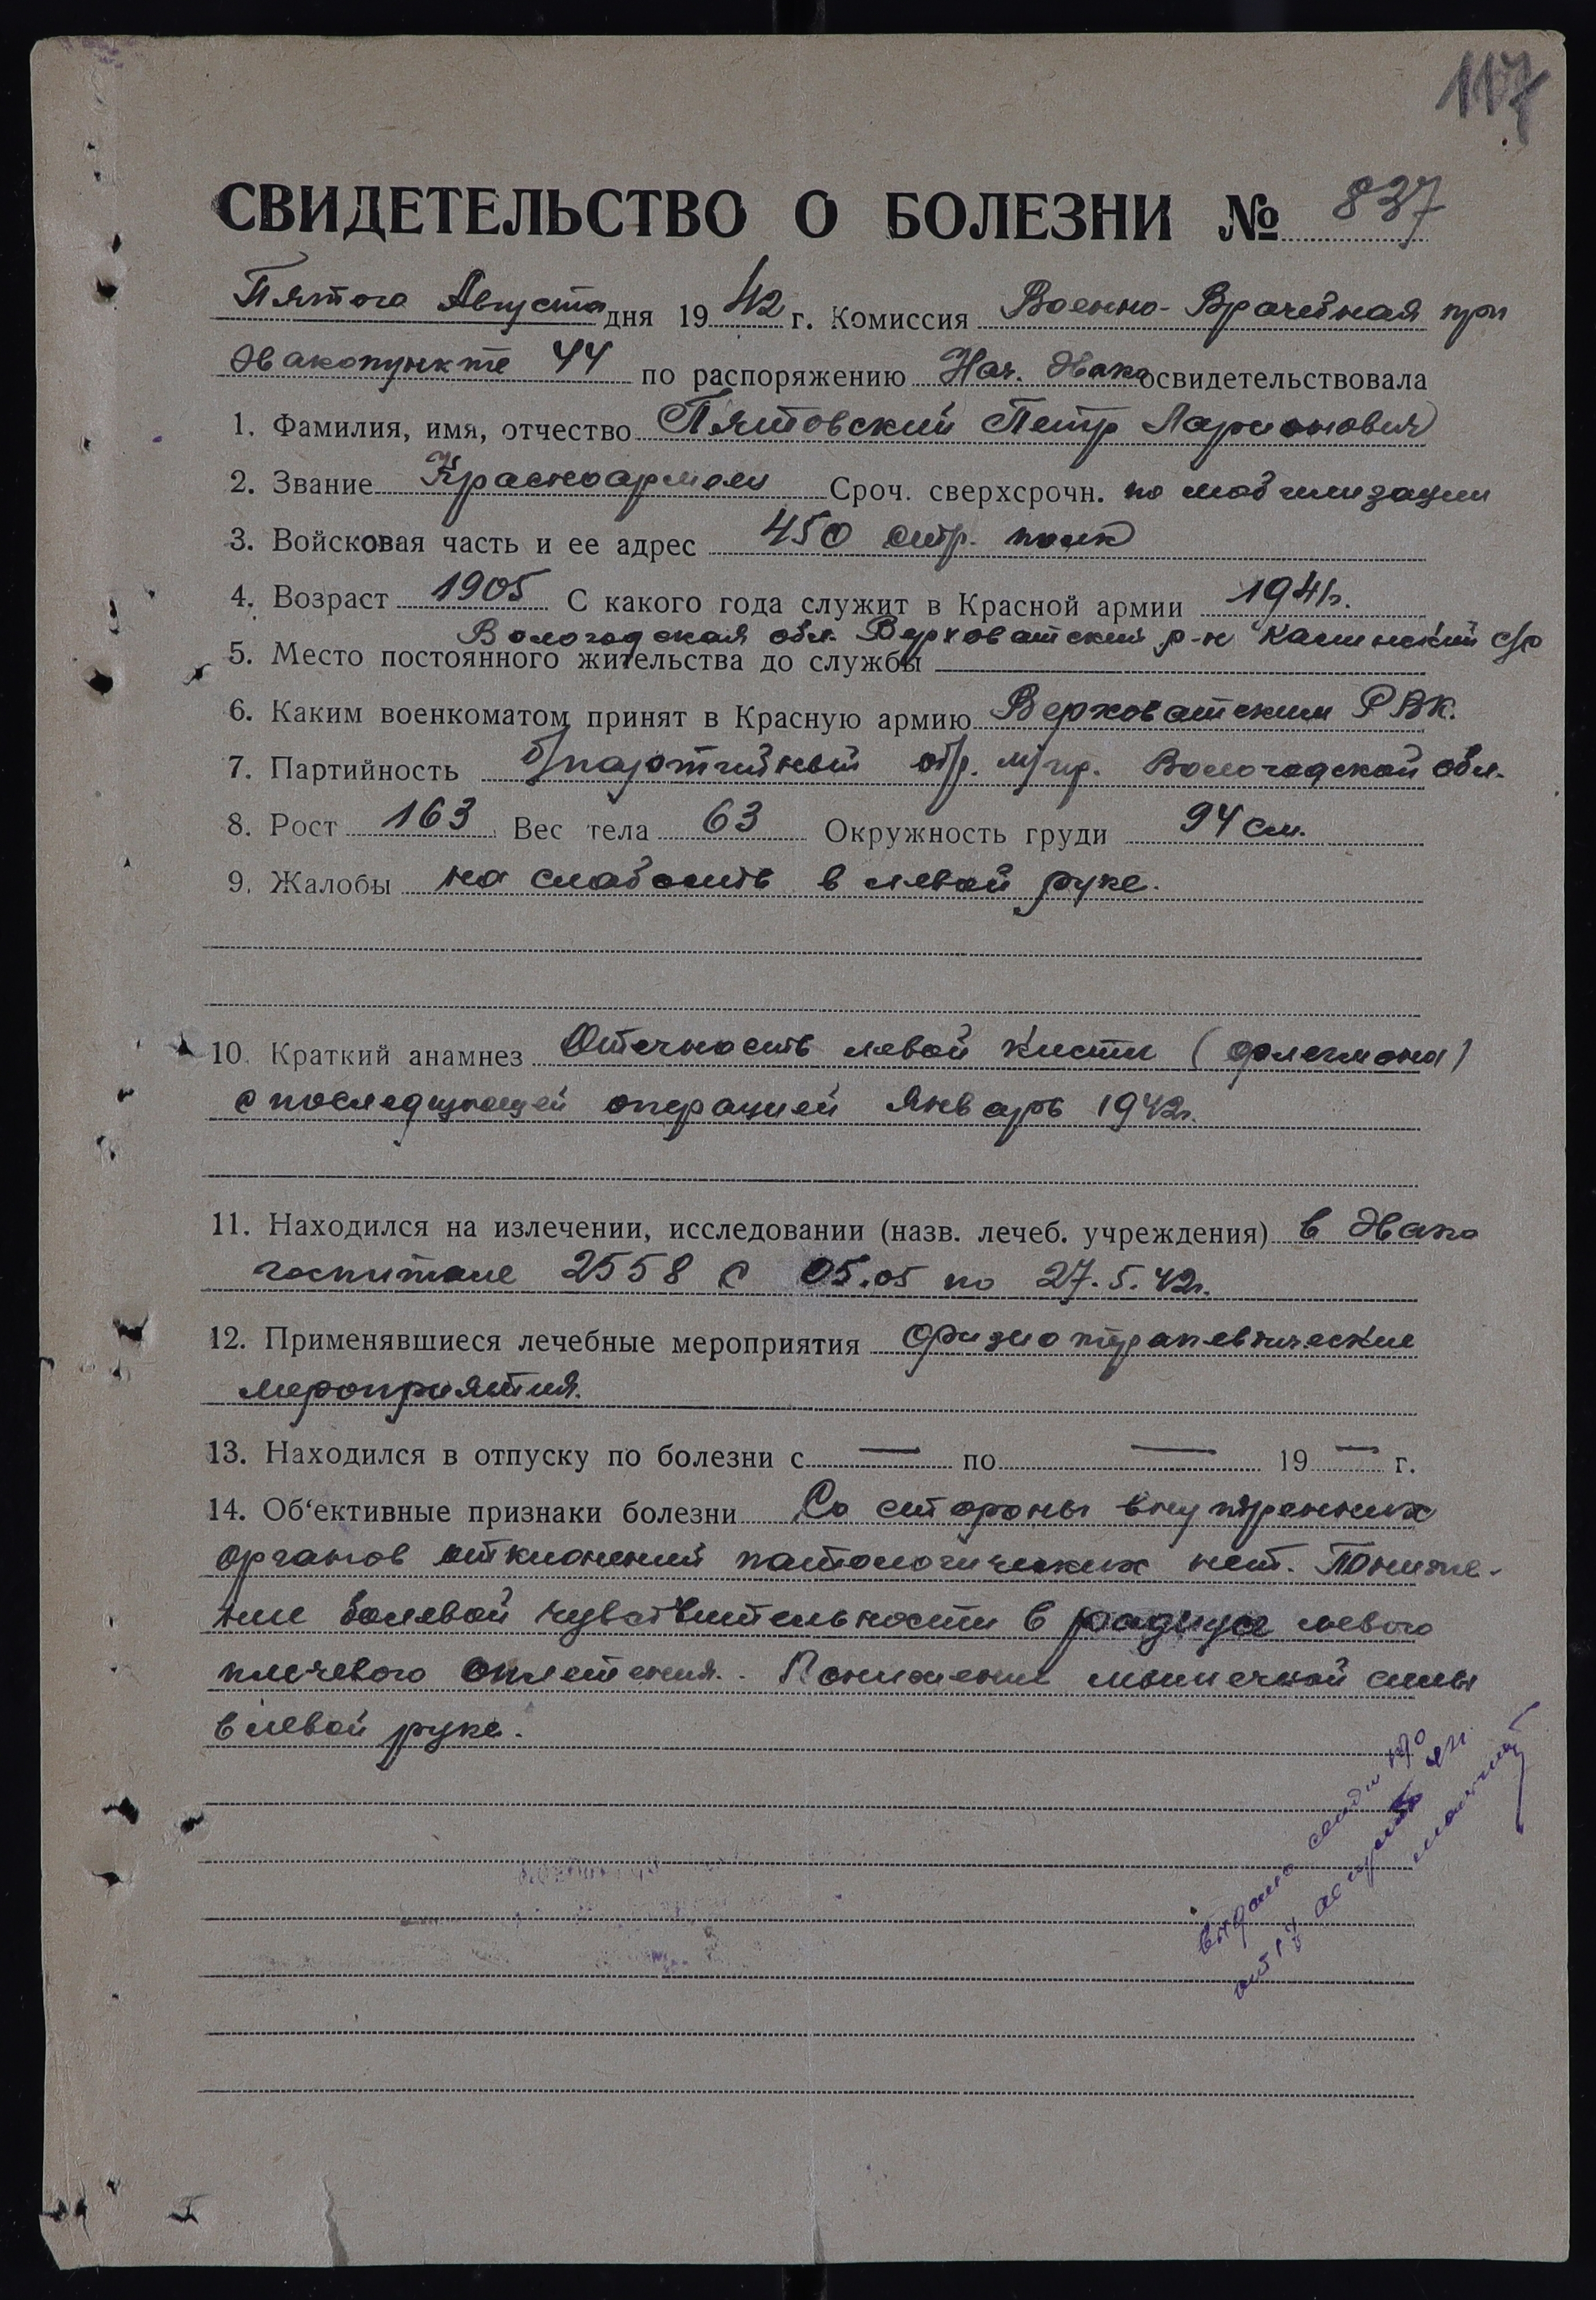 117
СВИДЕТЕЛЬСТВО О БОЛЕЗНИ № 837
Пятого Августа дня 1942 г. Комиссия Военно-Врачебная при
Эвакопункте 44 по распоряжению Нач. Эвако освидетельствовала
1. Фамилия, имя, отчество Пятовский Петр Ларионович
2. Звание Красноармеец Сроч. сверхсрочн. по мобилизации
3. Войсковая часть и ее адрес 450 стр. полк
4. Возраст 1905 С какого года служит в Красной армии 1941г.
Вологодская обл. Верховатский р-н с/с
5. Место постоянного жительства до службы
6. Каким военкоматом принят в Красную армию Верховатским РВК.
7. Партийность б/партийный обр. Вологодской обл.
8. Рост 163 Вес тела 63 Окружность груди 94 см.
9. Жалобы на слабость в левой руке.
10. Краткий анамнез Отечность левой кисти (флегмона)
с последующей операцией январь 1942г.
11. Находился на излечении, исследовании (назв. лечеб. учреждения) в Эвако
госпитале 2558 с 05.05 по 27.5.42г.
12. Применявшиеся лечебные мероприятия физиотерапевтические
мероприятия.
13. Находился в отпуску по болезни с — по — 19 — г.
14. Об'ективные признаки болезни Со стороны внутренних
органов отклонений патологических нет. Пониже-
ние болевой чувствительности в радиусе левого
плечевого сплетения. Понижение мышечной силы
в левой руке.